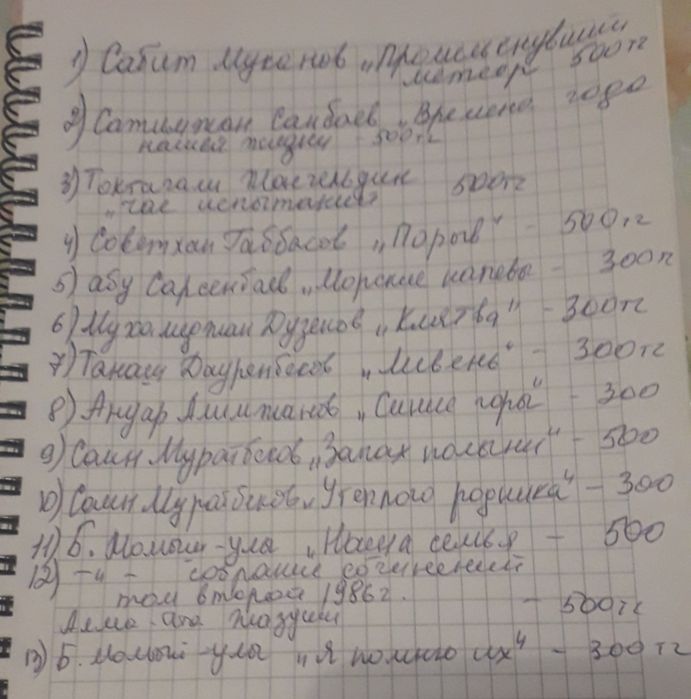 1) Сабит Муканов „Промелькнувший
метеор 500тг
2) Сатимжан Санбаев „Времена года
нашей жизни - 500тг
3) Токтагали Жангельдин 500тг
„Час испытаний"
4) Советхан Габбасов „Порыв" - 500тг
5) Абу Сарсенбаев „Морские напевы - 300тг
6) Мухамеджан Дузенов „Клятва" - 300тг
7) Танаш Дауренбеков „Ливень" - 300тг
8) Ануар Алимжанов „Синие горы" - 300
9) Саин Муратбеков „Запах полыни" - 500
10) Саин Муратбеков „У теплого родника" - 300
11) Б. Момыш-улы „Наша семья - 500
12) -"- собрание сочинений
том второй 1986г.
Алма-Ата Жазушы - 500тг
13) Б. Момыш-улы „Я помню их" - 300тг